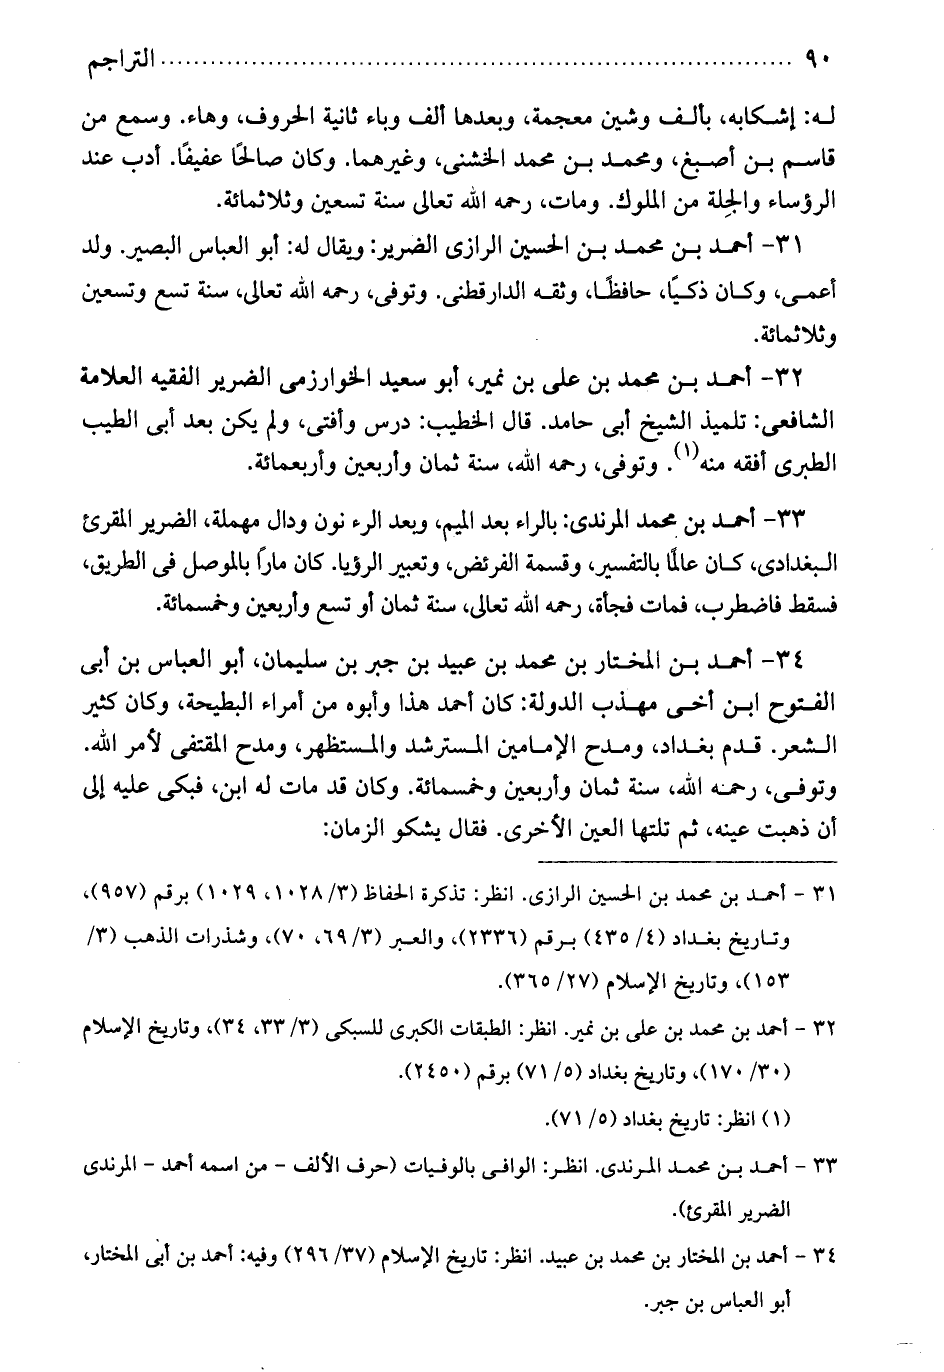 ٩٠ ........................................................................... التراجم
له: إشكابه، بألف وشين معجمة، وبعدها ألف وباء ثانية الحروف، وهاء. وسمع من
قاسم بن أصبغ، ومحمد بن محمد الخشنى، وغيرهما. وكان صالحًا عفيفًا. أدب عند
الرؤساء والجلة من الملوك. ومات، رحمه الله تعالى سنة تسعين وثلاثمائة.
٣١- أحمد بن محمد بن الحسين الرازى الضرير: ويقال له: أبو العباس البصير. ولد
أعمى، وكان ذكيًا، حافظًا، وثقه الدارقطنى. وتوفى، رحمه الله تعالى، سنة تسع وتسعين
وثلاثمائة.
٣٢- أحمد بن محمد بن على بن نمير، أبو سعيد الخوارزمى الضرير الفقيه العلامة
الشافعى: تلميذ الشيخ أبى حامد. قال الخطيب: درس وأفتى، ولم يكن بعد أبى الطيب
الطبرى أفقه منه(١). وتوفى، رحمه الله، سنة ثمان وأربعين وأربعمائة.
٣٣- أحمد بن محمد المرندى: بالراء بعد الميم، وبعد الرء نون ودال مهملة، الضرير المقرئ
البغدادى، كان عالمًا بالتفسير، وقسمة الفرئض، وتعبير الرؤيا. كان مارًا بالموصل فى الطريق،
فسقط فاضطرب، فمات فجأة، رحمه الله تعالى، سنة ثمان أو تسع وأربعين وخمسمائة.
٣٤- أحمد بن المختار بن محمد بن عبيد بن جبر بن سليمان، أبو العباس بن أبى
الفتوح ابن أخى مهذب الدولة: كان أحمد هذا وأبوه من أمراء البطيحة، وكان كثير
الشعر. قدم بغداد، ومدح الإمامين المسترشد والمستظهر، ومدح المقتفى لأمر الله.
وتوفى، رحمه الله، سنة ثمان وأربعين وخمسمائة. وكان قد مات له ابن، فبكى عليه إلى
أن ذهبت عينه، ثم تلتها العين الأخرى. فقال يشكو الزمان:
٣١ - أحمد بن محمد بن الحسين الرازى. انظر: تذكرة الحفاظ (٣/ ١٠٢٨، ١٠٢٩) برقم (٩٥٧)،
وتاريخ بغداد (٤/ ٤٣٥) برقم (٢٣٣٦)، والعبر (٣/ ٦٩، ٧٠)، وشذرات الذهب (٣/
١٥٣)، وتاريخ الإسلام (٢٧/ ٣٦٥).
٣٢ - أحمد بن محمد بن على بن نمير. انظر: الطبقات الكبرى للسبكى (٣/ ٣٣، ٣٤)، وتاريخ الإسلام
(٣٠/ ١٧٠)، وتاريخ بغداد (٥/ ٧١) برقم (٢٤٥٠).
(١) انظر: تاريخ بغداد (٥/ ٧١).
٣٣ - أحمد بن محمد المرندى. انظر: الوافى بالوفيات (حرف الألف - من اسمه أحمد - المرندى
الضرير المقرئ).
٣٤ - أحمد بن المختار بن محمد بن عبيد. انظر: تاريخ الإسلام (٣٧/ ٢٩٦) وفيه: أحمد بن أبى المختار،
أبو العباس بن جبر.